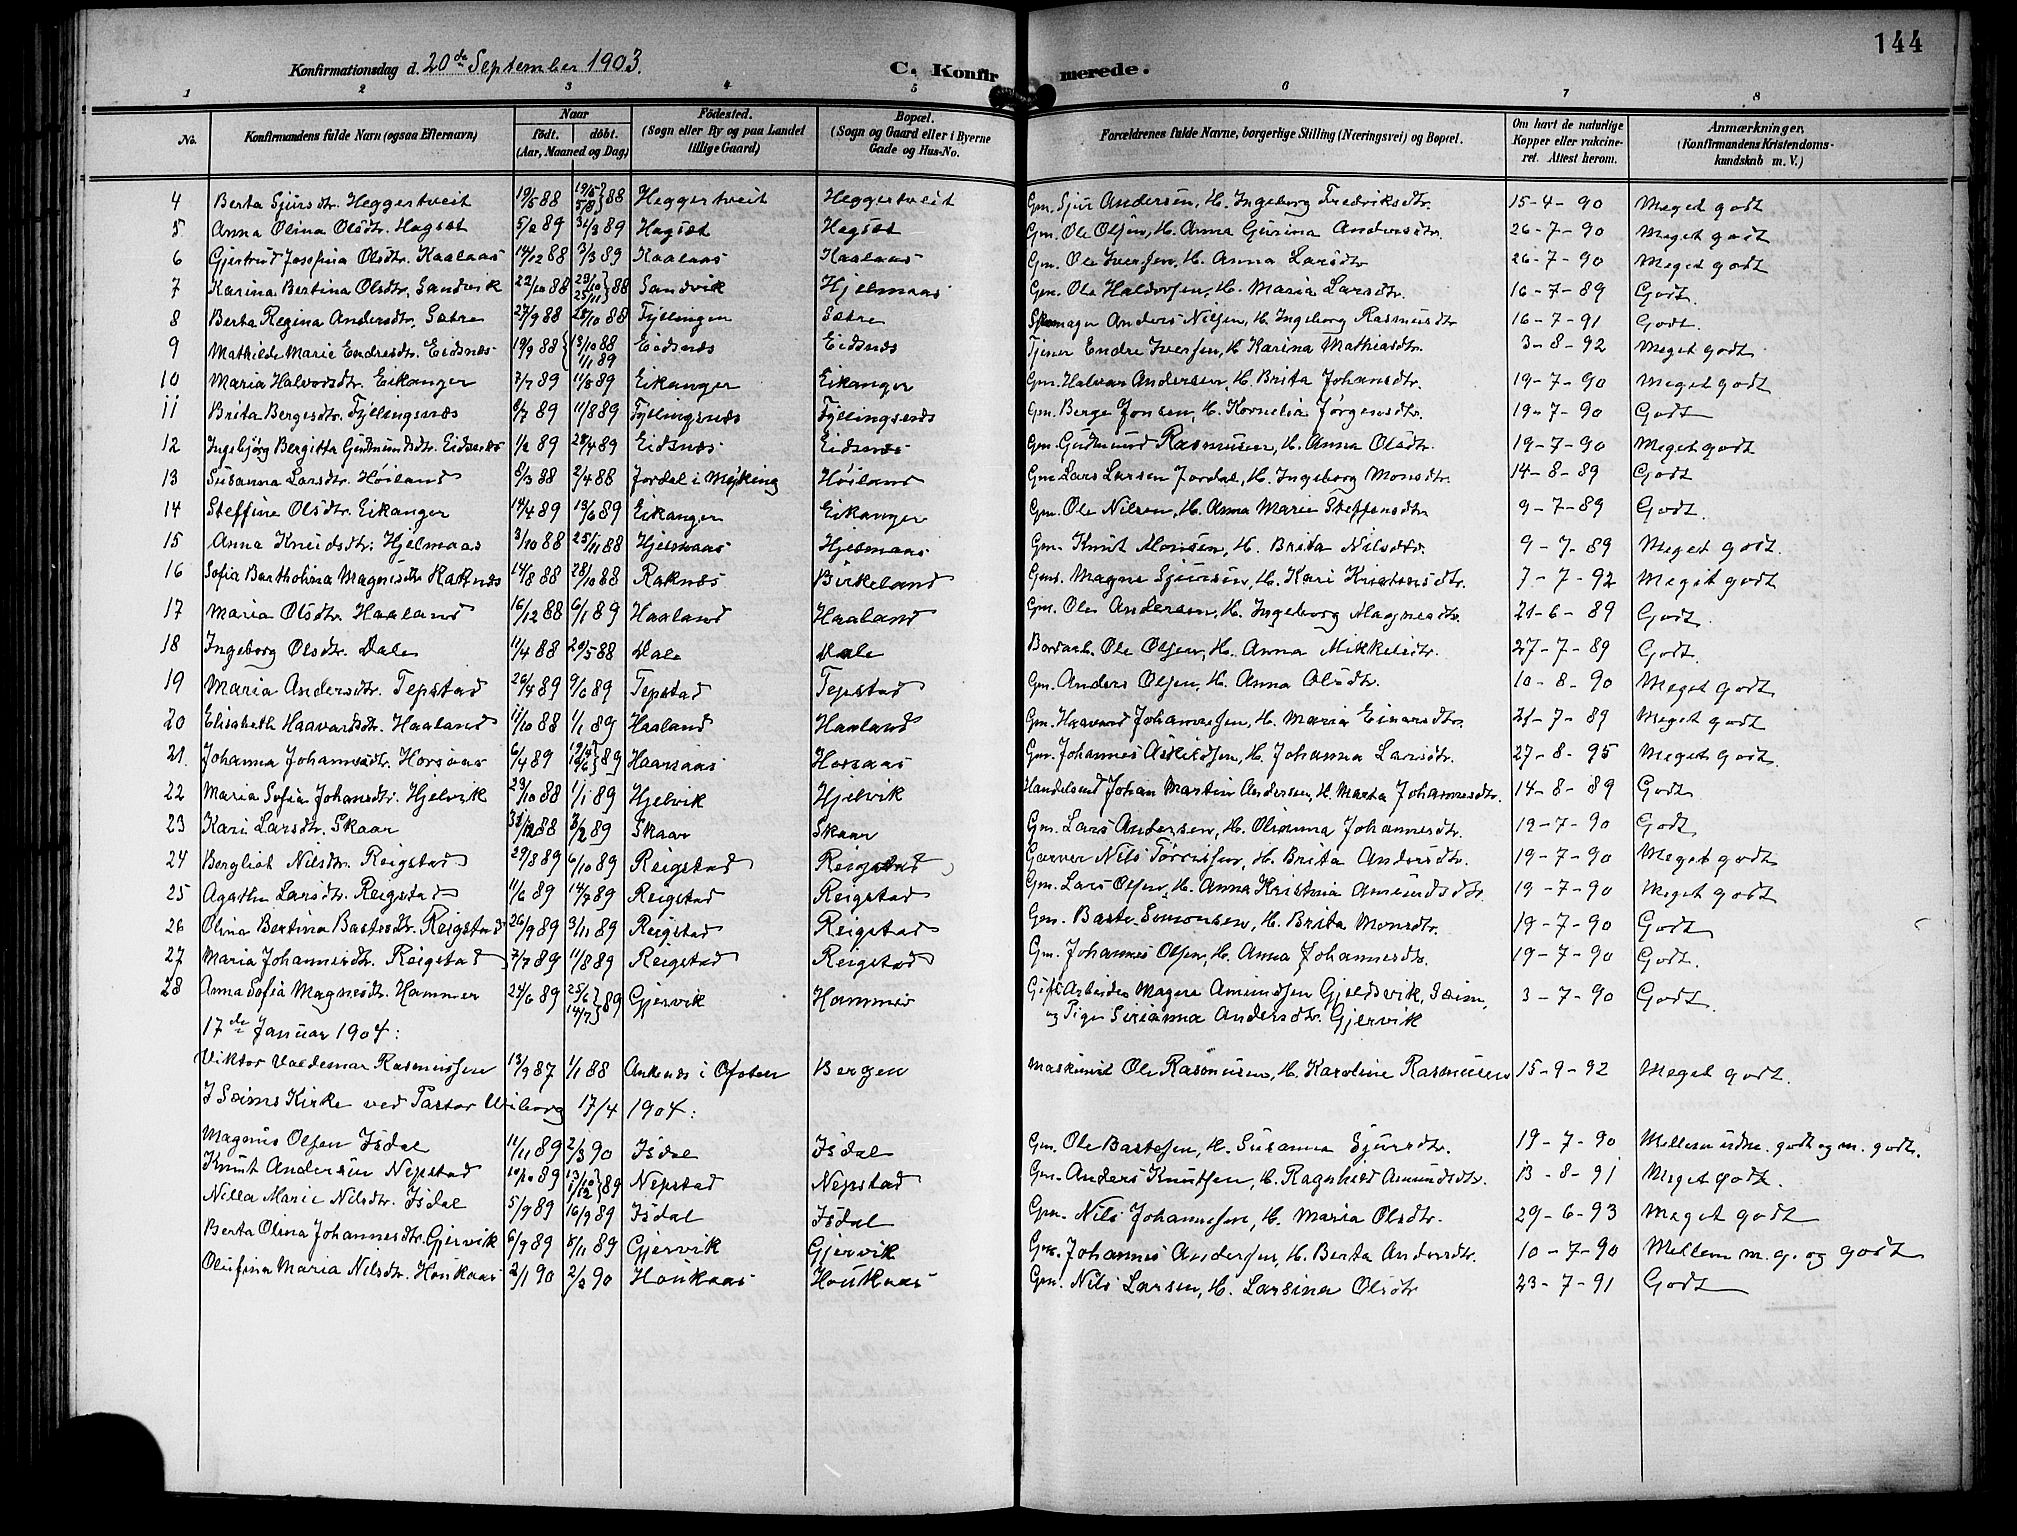 144
Konfirmationsdag d. 20de September 1903. C. Konfirmerede.
1 2 3 4 5 6 7 8
No. Konfirmandens fulde Navn (ogsaa Efternavn) Naar født. døbt. (Aar, Maaned og Dag) Fødested. (Sogn eller By og paa Landet tillige Gaard) Bopæl. (Sogn og Gaard eller i Byerne Gade og Hus-No. Forældrenes fulde Navne, borgerlige Stilling (Næringsvei) og Bopæl. Om havt de naturlige Kopper eller vakcineret. Attest herom. Anmærkninger. (Konfirmandens Kristendomskundskab m. V.)
4 Berta Sjursdtr. Heggertveit 19/5 88 19/5 5/8 } 88 Heggertveit Heggertveit Gm. Sjur Andersen, H. Ingeborg Fredriksdtr. 15-4-90 Meget godt
5 Anna Olina Olsdtr. Hagsæt 5/2 89 31/3 89 Hagsæt Hagsæt Gm. Ole Olsen, H. Anna Gurina Andersdtr. 26-7-90 Meget godt
6 Gjertrud Josefina Olsdtr. Kaalaas 14/12 88 3/3 89 Kaalaas Kaalaas Gm. Ole Iversen, H. Anna Larsdtr 26-7-90 Meget godt
7 Karina Bertina Olsdtr. Sandvik 22/10 88 29/10 25/11 } 88 Sandvik Hjelmaas Gm. Ole Haldorsen, H. Maria Larsdtr. 16-7-89 Godt.
8 Berta Regina Andersdtr. Sætre 27/9 88 28/10 88 Fyllingen Sætre Skomager Anders Nilsen, H. Ingeborg Rasmusdtr 16-7-91 Godt.
9 Mathilde Marie Endresdtr. Eidsnæs 19/9 88 { 13/10 88 1/1 89 Eidsnæs Eidsnæs Tjener Endre Iversen, H. Karina Mathiasdtr. 3-8-92 Meget godt
10 Maria Halvorsdtr. Eikanger 7/7 89 11/8 89 Eikanger Eikanger Gm. Halvor Andersen, H. Brita Johansdtr. 19-7-90 Meget godt
11 Brita Bergesdtr. Fyllingsnæs 8/7 89 11/8 89 Fyllingsnæs Fyllingsnæs Gm. Berge Jonsen, H. Kornelia Jørgensdtr. 19-7-90 Godt
12 Ingebjørg Bergitta Gudmundsdtr. Eidsnæs 1/2 89 28/4 89 Eidsnæs Eidsnæs Gm. Gudmund Rasmussen, H. Anna Olsdtr. 19-7-90 Meget godt
13 Susanna Larsdtr. Høiland 8/3 88 2/4 88 Jordal i Myking Høiland Gm Lars Larsen Jordal, H. Ingeborg Monsdtr. 14-8-89 Godt
14 Steffine Olsdtr. Eikanger 14/4 89 13/6 89 Eikanger Eikanger Gm. Ole Nilsen, H. Anna Marie Steffensdtr 9-7-89 Godt.
15 Anna Knudsdtr. Hjelmaas 3/10 88 25/11 88 Hjelmaas Hjelmaas Gm. Knut Monsen, H. Brita Nilsdtr. 9-7-89 Meget godt.
16 Sofia Bartholina Magnesdtr. Raknæs 14/8 88 28/10 88 Raknæs Birkeland Gm. Magne Sjursen, H. Kari Kristensdtr. 7-7-92 Meget godt
17 Maria Olsdtr. Haaland 16/12 88 6/1 89 Haaland Haaland Gm. Ole Andersen, H. Ingeborg Magnesdtr. 21-6-89 Godt.
18 Ingeborg Olsdtr. Dale 11/4 88 20/5 88 Dale Dale Ole Olsen, H. Anna Mikkelsdtr. 27-7-89 Godt.
19 Maria Andersdtr. Tepstad 26/4 89 9/6 89 Tepstad Tepstad Gm. Anders Olsen, H. Anna Olsdtr. 10-8-90 Meget godt
20 Elisabeth Haavardsdtr. Haaland 11/10 88 1/1 89 Haaland Haaland Gm. Haavard Johannessen, H. Maria Einarsdtr. 21-7-89 Meget godt
21. Johanna Johannesdtr. Horsaas 6/4 89 19/4 } 89 Haarsaas Horsaas Gm. Johannes Askildsen, H. Johanna Larsdtr. 27-8-95 Meget godt.
22 Maria Sofia Johansdtr. Hjelvik 29/10 88 1/1 89 Hjelvik Hjelvik Handelsmd Johan Martin Andersen, H. Marta Johannesdtr. 14-8-89 Godt
23 Kari Larsdtr. Skaar 31/12 88 3/2 89 Skaar Skaar Gm. Lars Andersen, H. Olianna Johannesdtr. 19-7-90 Godt
24 Bergliot Nilsdtr. Reigstad 29/8 89 6/10 89 Reigstad Reigstad Garver Nils Torrissen, H. Brita Andersdtr. 19-7-90 Meget godt
25 Agatha Larsdtr. Reigstad 11/6 89 14/7 89 Reigstad Reigstad Gm. Lars Olsen, H. Anna Kristina Amundsdtr. 19-7-90 Meget godt
26 Olina Bertina Bastesdtr. Reigstad 26/9 89 3/11 89 Reigstad Reigstad Gm. Baste Simonsen, H. Brita Monsdtr. 19-7-90 Godt
27 Maria Johannesdtr. Reigstad 7/7 89 11/8 89 Reigstad Reigstad Gm. Johannes Olsen, H. Anna Johannesdtr. 19-7-90 Godt.
28 Anna Sofia Magnesdtr. Hammer 24/6 89 25/6 14/7 } 89 Gjervik Hammer Gift Arbeider Magne Amundsen Gjeldsvik, Seim, 3-7-90 Godt.
og Pige Sirianna Andersdtr. Gjervik
17de Januar 1904:
Viktor Valdemar Rasmussen 13/9 87 1/1 88 Ankenæs i Ofoten Bergen Maskinist Ole Rasmussen, H. Karoline Rasmussen 15-9-92 Meget godt.
I Seims Kirke ved Pastor Wiborg 17/4 1904:
Magnus Olsen Isdal 11/11 89 2/3 90 Isdal Isdal Gm. Ole Bastesen, H. Susanna Sjursdtr. 19-7-90 Mellem udm. godt og m. godt.
Knut Andersen Nepstad 10/10 89 13/10 1/12 } 89 Nepstad Nepstad Gm. Anders Knutsen, H. Ragnhild Amundsdtr. 13-8-91 Meget godt.
Nilla Marie Nilsdtr. Isdal 5/9 89 16/9 89 Isdal Isdal Gm. Nils Johannesen, H. Maria Olsdtr. 29-6-93 Meget godt
Berta Olina Johannesdtr. Gjervik 6/9 89 8/11 89 Gjervik Gjervik Gm. Johannes Andersen, H. Berta Andersdtr. 10-7-90 Mellem m. g. og godt
Olufina Maria Nilsdtr. Houkaas 2/1 90 2/2 90 Houkaas Houkaas Gm. Nils Larsen, H. Larsina Olsdtr 23-7-91 Godt